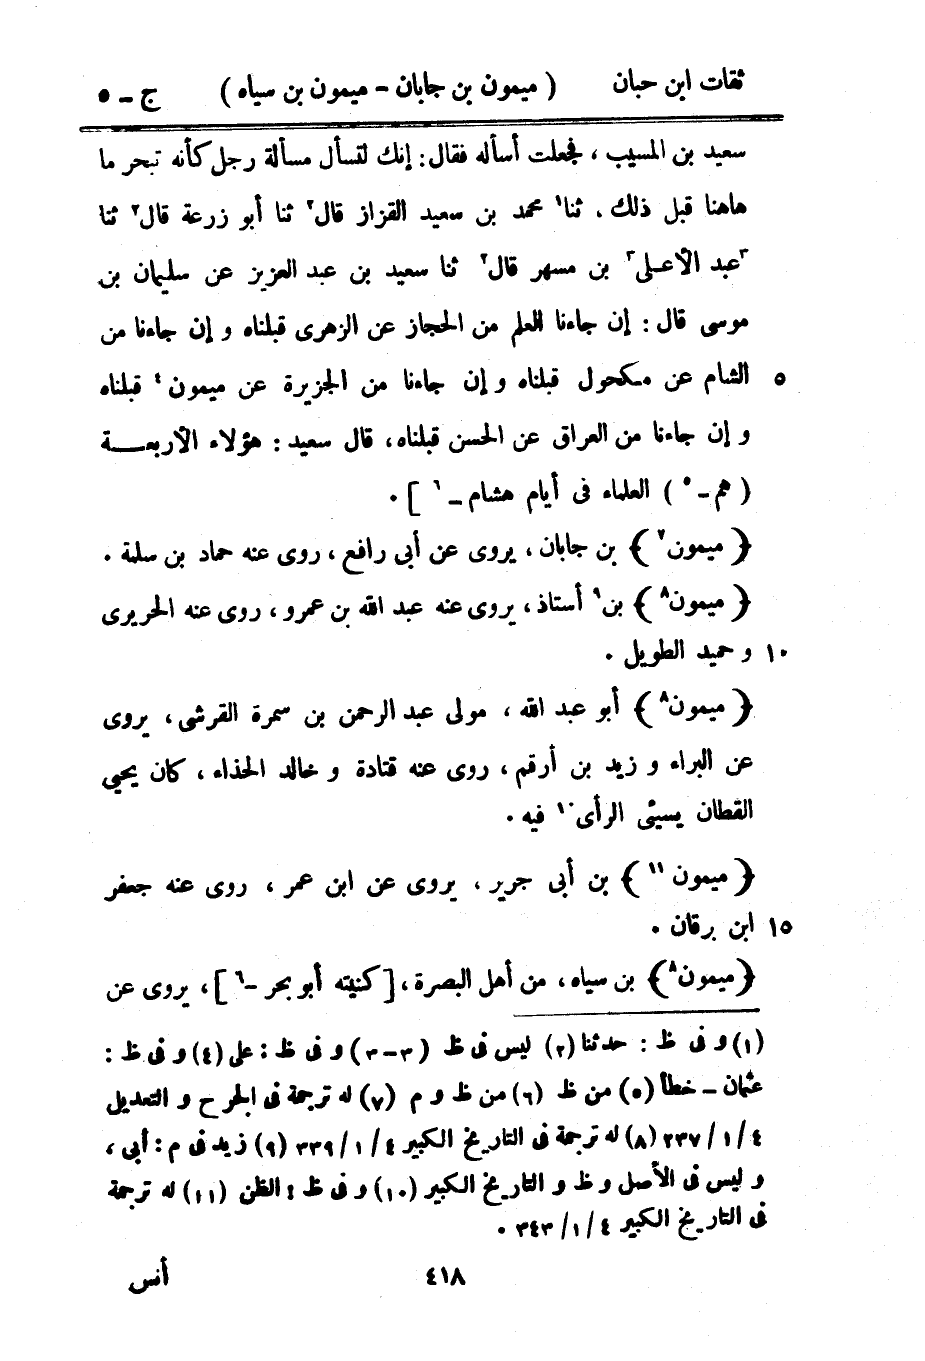 ثقات ابن حبان ( ميمون بن جابان - ميمون بن سياه ) ج - ٥
سعيد بن المسيب ، فجعلت أسأله فقال : إنك لتسأل مسألة رجل كأنه تبحر ما
هاهنا قبل ذلك . ثنا١ محمد بن سعيد القزاز قال٢ ثنا أبو زرعة قال٢ ثنا
٣عبد الأعلى٣ بن مسهر قال٢ ثنا سعيد بن عبد العزيز عن سليمان بن
موسى قال : إن جاءنا العلم من الحجاز عن الزهرى قبلناه و إن جاءنا من
٥ الشام عن مكحول قبلناه و إن جاءنا من الجزيرة عن ميمون٤ قبلناه
و إن جاءنا من العراق عن الحسن قبلناه، قال سعيد : هؤلاء الأربعة
( هم - ٥ ) العلماء فى أيام هشام - ٦ ] .
﴿ ميمون٧ ﴾ بن جابان ، يروى عن أبى رافع ، روى عنه حماد بن سلمة .
﴿ ميمون٨ ﴾ بن٩ أستاذ ، يروى عنه عبد الله بن عمرو ، روى عنه الحريرى
١٠ و حميد الطويل .
﴿ ميمون٨ ﴾ أبو عبد الله ، مولى عبد الرحمن بن سمرة القرشى ، يروى
عن البراء و زيد بن أرقم ، روى عنه قتادة و خالد الحذاء ، كان يحيى
القطان يسيئى الرأى١٠ فيه .
﴿ ميمون١١ ﴾ بن أبى جرير ، يروى عن ابن عمر ، روى عنه جعفر
١٥ ابن برقان .
﴿ ميمون٨ ﴾ بن سياه ، من أهل البصرة ، [ كنيته أبو بحر - ٦ ] ، يروى عن
(١) و فى ظ : حدثنا (٢) ليس فى ظ (٣ - ٣) و فى ظ : على (٤) و فى ظ :
عثمان - خطأ (٥) من ظ (٦) من ظ و م (٧) له ترجمة فى الجرح و التعديل
٤ / ١ / ٢٣٧ (٨) له ترجمة فى التاريخ الكبير ٤ / ١ / ٣٣٩ (٩) زيد فى م : أبى ،
و ليس فى الأصل و ظ و التاريخ الكبير (١٠) و فى ظ : الظن (١١) له ترجمة
فى التاريخ الكبير ٤ / ١ / ٣٤٣ .
٤١٨ أنس